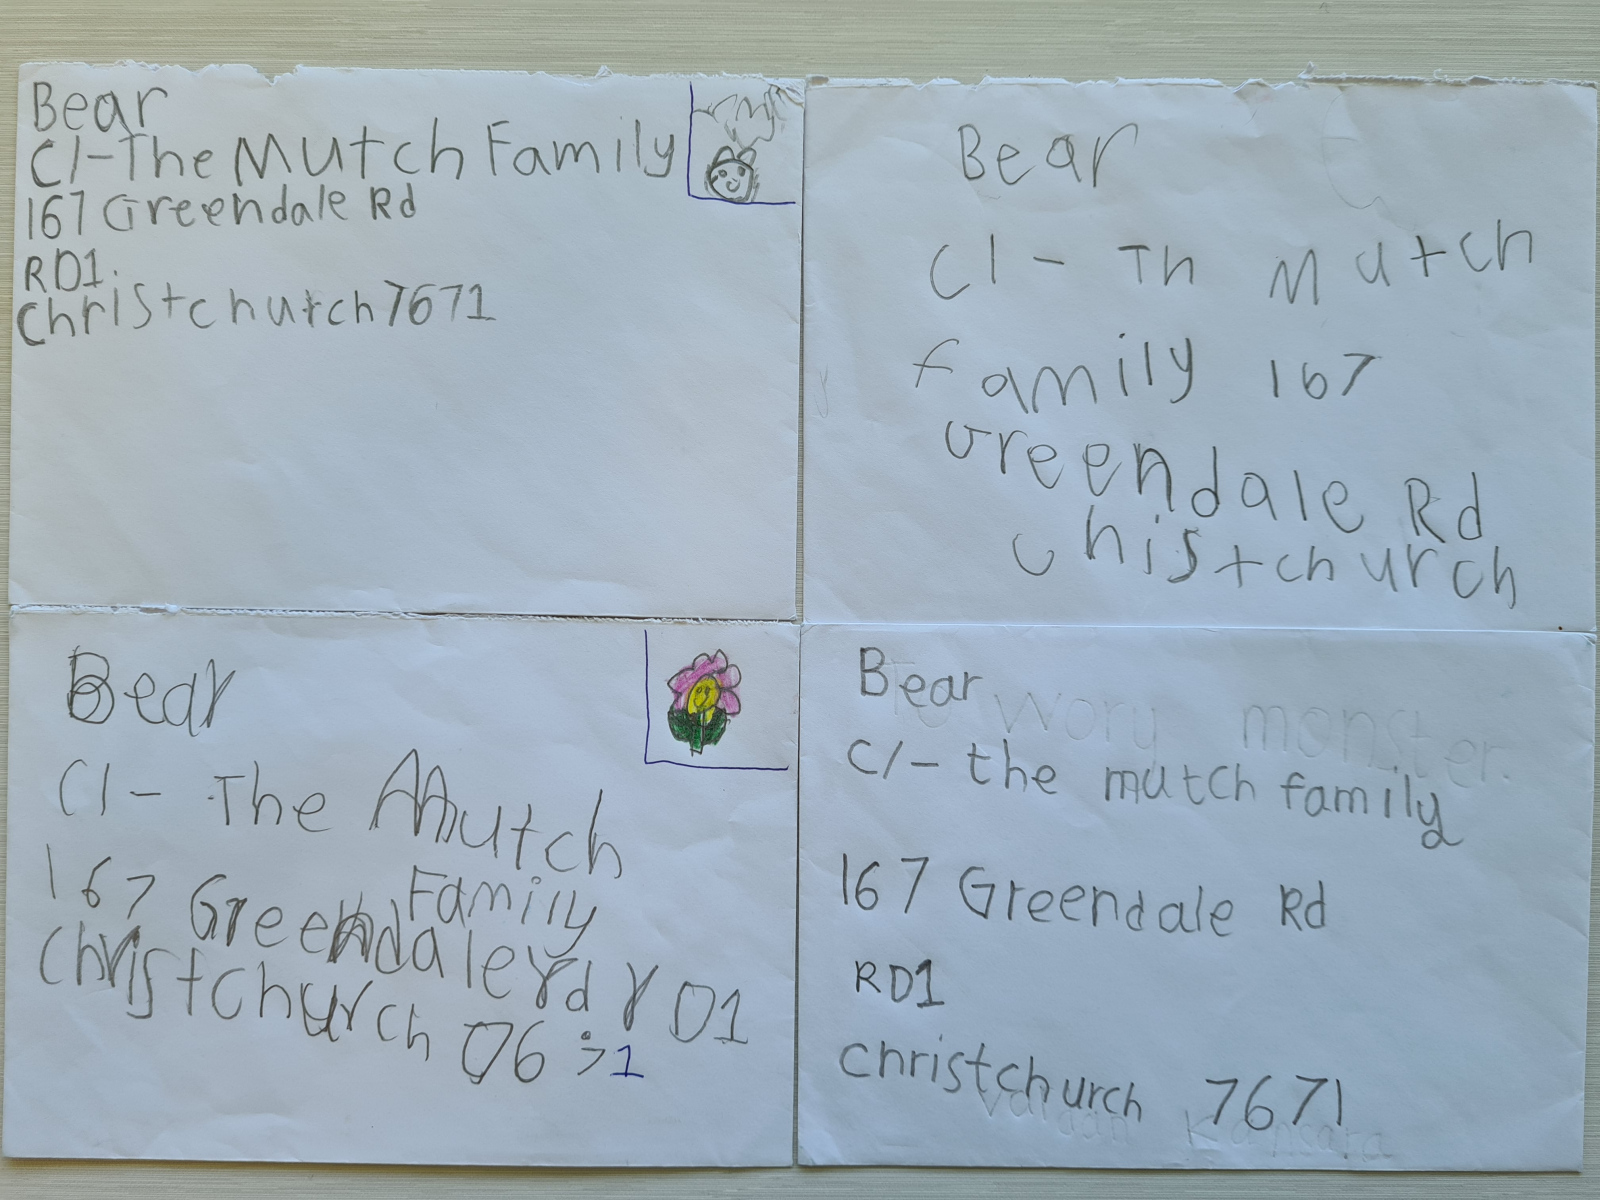 Bear
C/-The Mutch Family
167 Greendale Rd
RD1.
Christchurch 7671
Bear
C/- Th Mutch
family 167
Greendale Rd
Chistchurch
Bear
C/- The Mutch
Family
167 Greendale rd r D1
Christchurch
Bear
C/- the mutch family
167 Greendale Rd
RD1
christchurch 7671
wory monster.